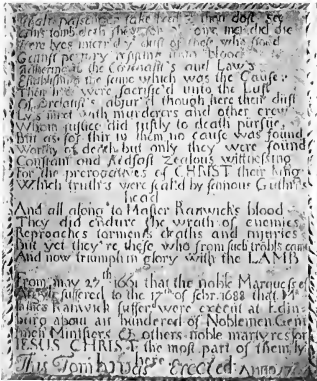 Halt passenger take heed what thou dost see
This tomb doth shew for some men did die
Here lyes interr'd dust of those who stood
Gainst perjury resisting unto blood
Adhering to the Covenants and Laws
Establishing the same which was the Cause
Then lives were sacrific'd unto the Lust
Of Prelatist's abjur'd though here their dust
Lys mixt with murderers and other crew
Whom justice did justly to death pursue
But as for this in them no cause was found
Worthy of death but only they were found
Constant and stedfast Zealous witnessing
For the prerogatives of CHRIST their King
Which truths were seal'd by famous Guthrie's
head
And all along to Master Ranwick's blood
They did endure the wrath of enemies
Reproaches torments deaths and injuries
But yet they're these who from such trobls came
And now triumph in glory with the LAMB
From may 27th 1661 that the noble Marquess of
suffered to the 17th of febr. 1688 that Mr
James Ranwick suffer, were execut at Edin-
burg about an hundered of Noblemen Gent
men Ministers & others noble martyres for
JESUS CHRIST the most part of them ly
here
This Tomb was Erected Anno 17